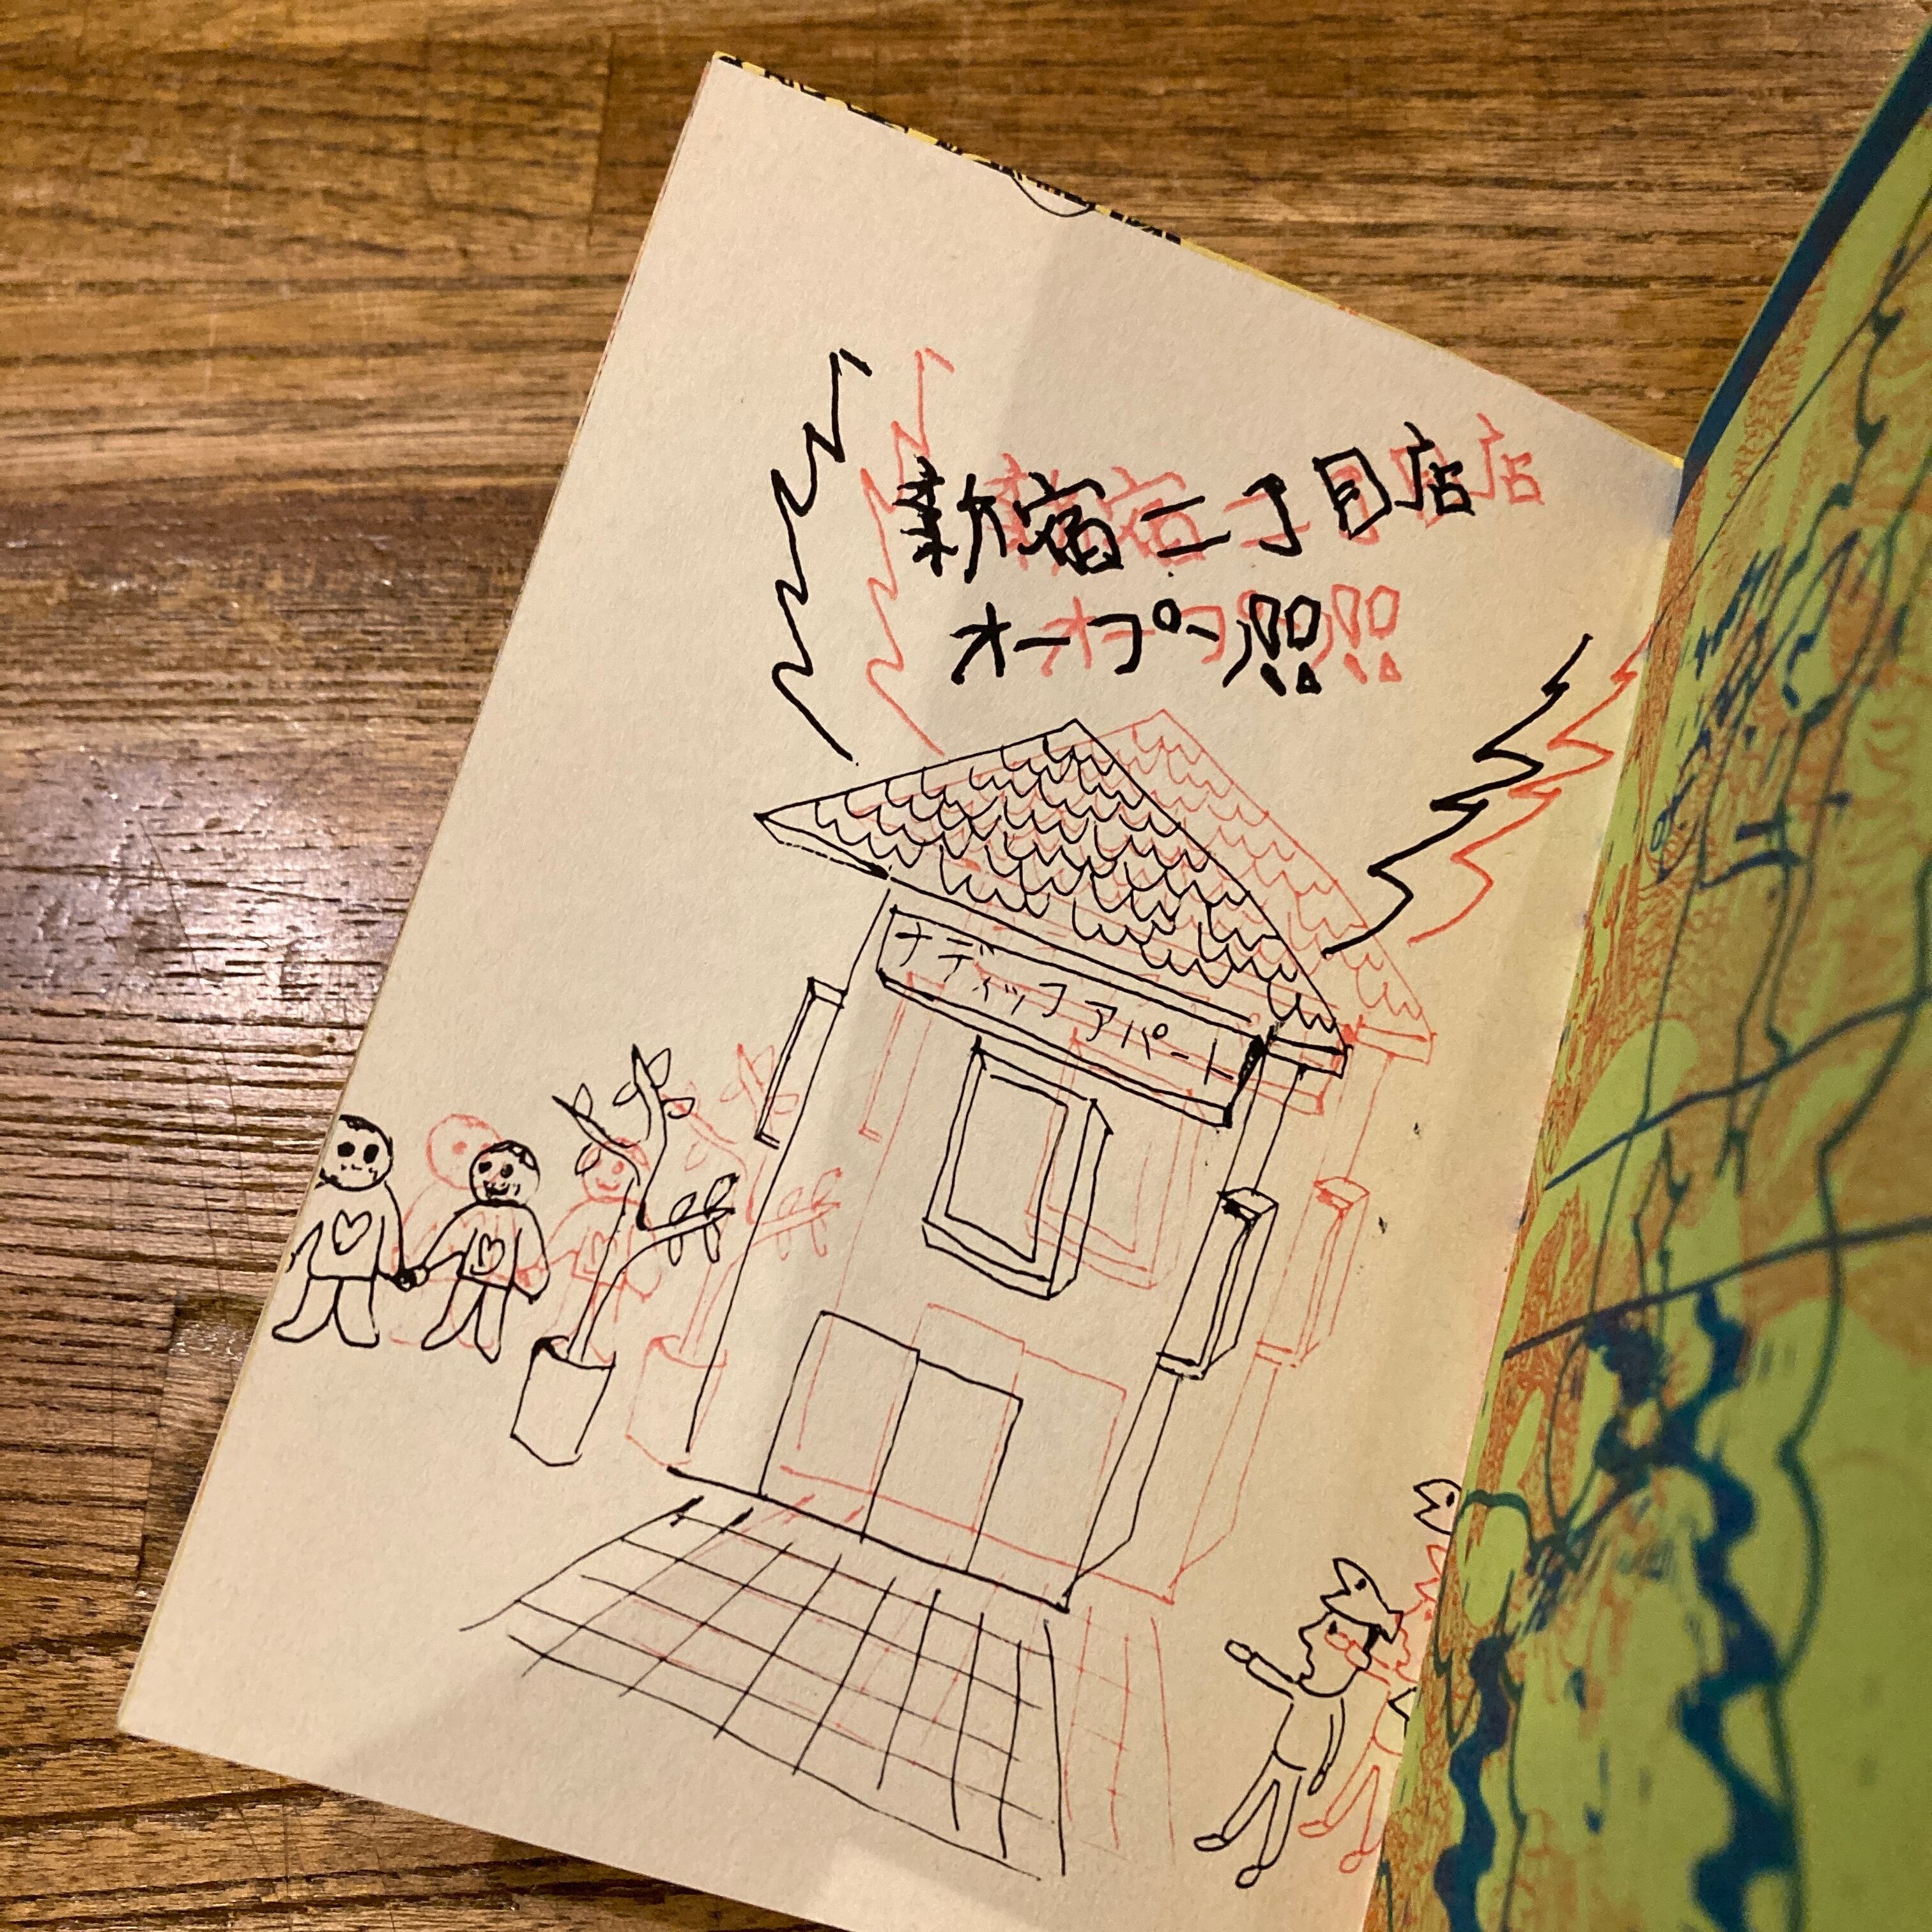 新宿二丁目店
オープン!!
ナディッフアパート